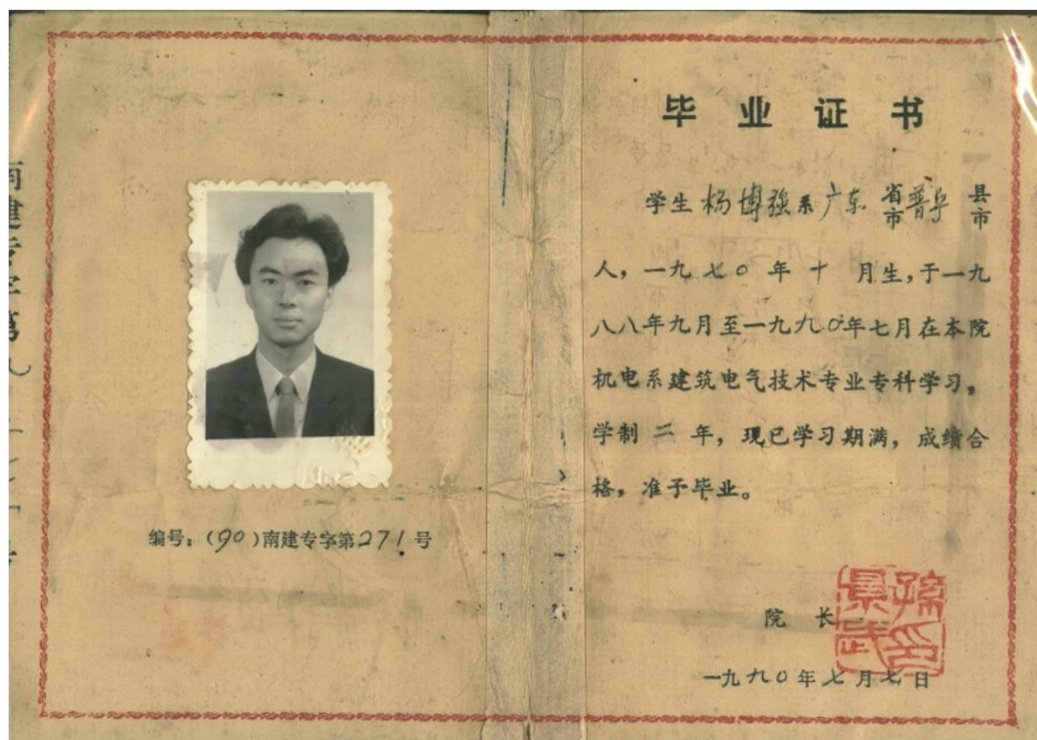 编号：(90)南建专字第271号
毕业证书
学生杨博强系广东省市普宁县市
人，一九七〇年十月生，于一九
八八年九月至一九九〇年七月在本院
机电系建筑电气技术专业专科学习，
学制二年，现已学习期满，成绩合
格，准予毕业。
院长
孙景武印
一九九〇年七月七日
南建专字第